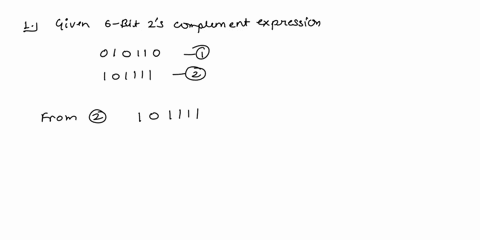 1.) Given 6-Bit 2's complement expression
010110 — ①
101111 — ②
From ② 101111